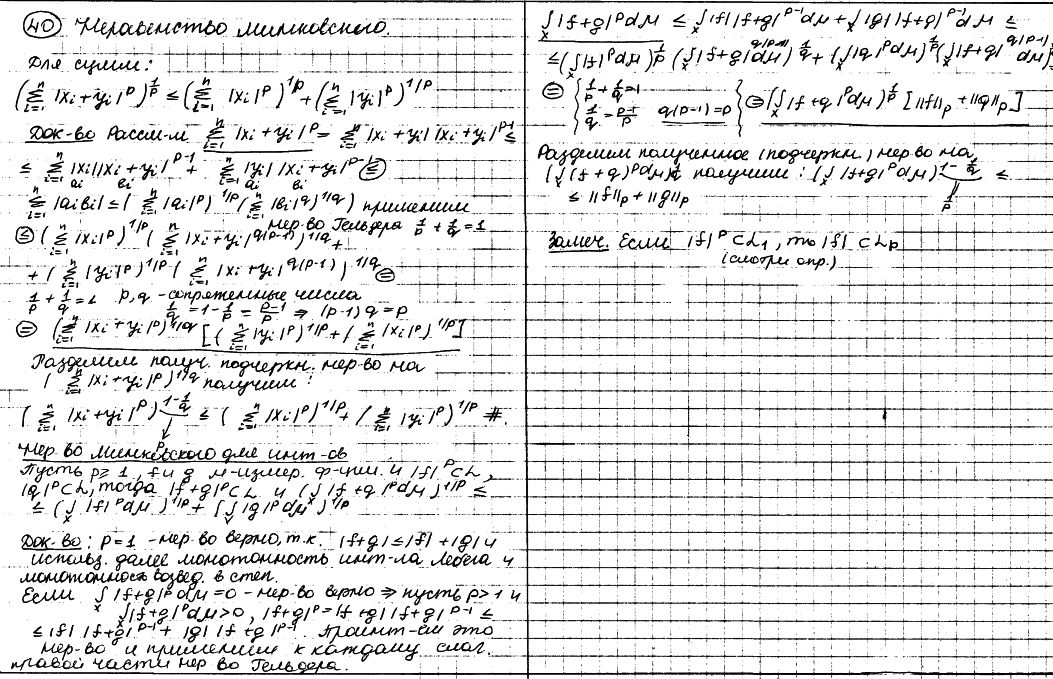 40 Неравенство Минковского.
Для сумм:
(∑ᵢ₌₁ⁿ |xᵢ+yᵢ|ᵖ)^{1/p} ≤ (∑ᵢ₌₁ⁿ |xᵢ|ᵖ)^{1/p} + (∑ᵢ₌₁ⁿ |yᵢ|ᵖ)^{1/p}
Док-во Рассм-м ∑ᵢ₌₁ⁿ |xᵢ+yᵢ|ᵖ = ∑ᵢ₌₁ⁿ |xᵢ+yᵢ| |xᵢ+yᵢ|^{p-1} ≤
≤ ∑ᵢ₌₁ⁿ |xᵢ||xᵢ+yᵢ|^{p-1} + ∑ᵢ₌₁ⁿ |yᵢ| |xᵢ+yᵢ|^{p-1} ≤
aᵢ вᵢ aᵢ вᵢ
∑ᵢ₌₁ⁿ |aᵢвᵢ| ≤ (∑ᵢ₌₁ⁿ |aᵢ|ᵖ)^{1/p} (∑ᵢ₌₁ⁿ |вᵢ|^q)^{1/q} применим
нер-во Гельдера 1/p + 1/q = 1
≤ (∑ᵢ₌₁ⁿ |xᵢ|ᵖ)^{1/p} (∑ᵢ₌₁ⁿ |xᵢ+yᵢ|^{q(p-1)})^{1/q} +
+ (∑ᵢ₌₁ⁿ |yᵢ|ᵖ)^{1/p} (∑ᵢ₌₁ⁿ |xᵢ+yᵢ|^{q(p-1)})^{1/q} =
1/p + 1/q = 1 p, q - сопряженные числа
1/q = 1 - 1/p = (p-1)/p ⇒ (p-1) q = p
= (∑ᵢ₌₁ⁿ |xᵢ+yᵢ|ᵖ)^{1/q} [(∑ᵢ₌₁ⁿ |yᵢ|ᵖ)^{1/p} + (∑ᵢ₌₁ⁿ |xᵢ|ᵖ)^{1/p}]
Разделим получ. подчеркн. нер-во на
(∑ᵢ₌₁ⁿ |xᵢ+yᵢ|ᵖ)^{1/q} получим:
(∑ᵢ₌₁ⁿ |xᵢ+yᵢ|ᵖ)^{1-1/q} ≤ (∑ᵢ₌₁ⁿ |xᵢ|ᵖ)^{1/p} + (∑ᵢ₌₁ⁿ |yᵢ|ᵖ)^{1/p} #.
Нер-во Минковского для инт-ов
Пусть p≥1, f и g μ-измер. ф-ции. и |f|ᵖ ⊂ L,
|g|ᵖ ⊂ L, тогда |f+g|ᵖ ⊂ L и (∫ₓ |f+g|ᵖ dμ)^{1/p} ≤
≤ (∫ₓ |f|ᵖ dμ)^{1/p} + (∫ₓ |g|ᵖ dμ)^{1/p}
Док-во: p=1 - нер-во верно, т.к. |f+g| ≤ |f| + |g| и
использ. далее монотонность инт-ла Лебега и
монотонность возвед. в степ.
Если ∫ₓ |f+g|ᵖ dμ = 0 - нер-во верно ⇒ пусть p>1 и
∫ₓ |f+g|ᵖ dμ > 0, |f+g|ᵖ = |f+g| |f+g|^{p-1} ≤
≤ |f| |f+g|^{p-1} + |g| |f+g|^{p-1}. Проинт-ем это
нер-во и применим к каждому слаг.
правой части нер-во Гельдера.
∫ₓ |f+g|ᵖ dμ ≤ ∫ₓ |f| |f+g|^{p-1} dμ + ∫ₓ |g| |f+g|^{p-1} dμ ≤
≤ (∫ₓ |f|ᵖ dμ)^{1/p} (∫ₓ |f+g|^{q(p-1)} dμ)^{1/q} + (∫ₓ |g|ᵖ dμ)^{1/p} (∫ₓ |f+g|^{q(p-1)} dμ)
= { 1/p + 1/q = 1
1/q = (p-1)/p q(p-1) = p } = (∫ₓ |f+g|ᵖ dμ)^{1/q} [||f||ₚ + ||g||ₚ]
Разделим полученное (подчеркн.) нер-во на
(∫ₓ (f+g)ᵖ dμ)^{1/q} получим: (∫ₓ |f+g|ᵖ dμ)^{1-1/q} ≤
≤ ||f||ₚ + ||g||ₚ
1/p
Замеч. Если |f|ᵖ ⊂ L₁, то |f| ⊂ Lₚ
(смотри опр.)